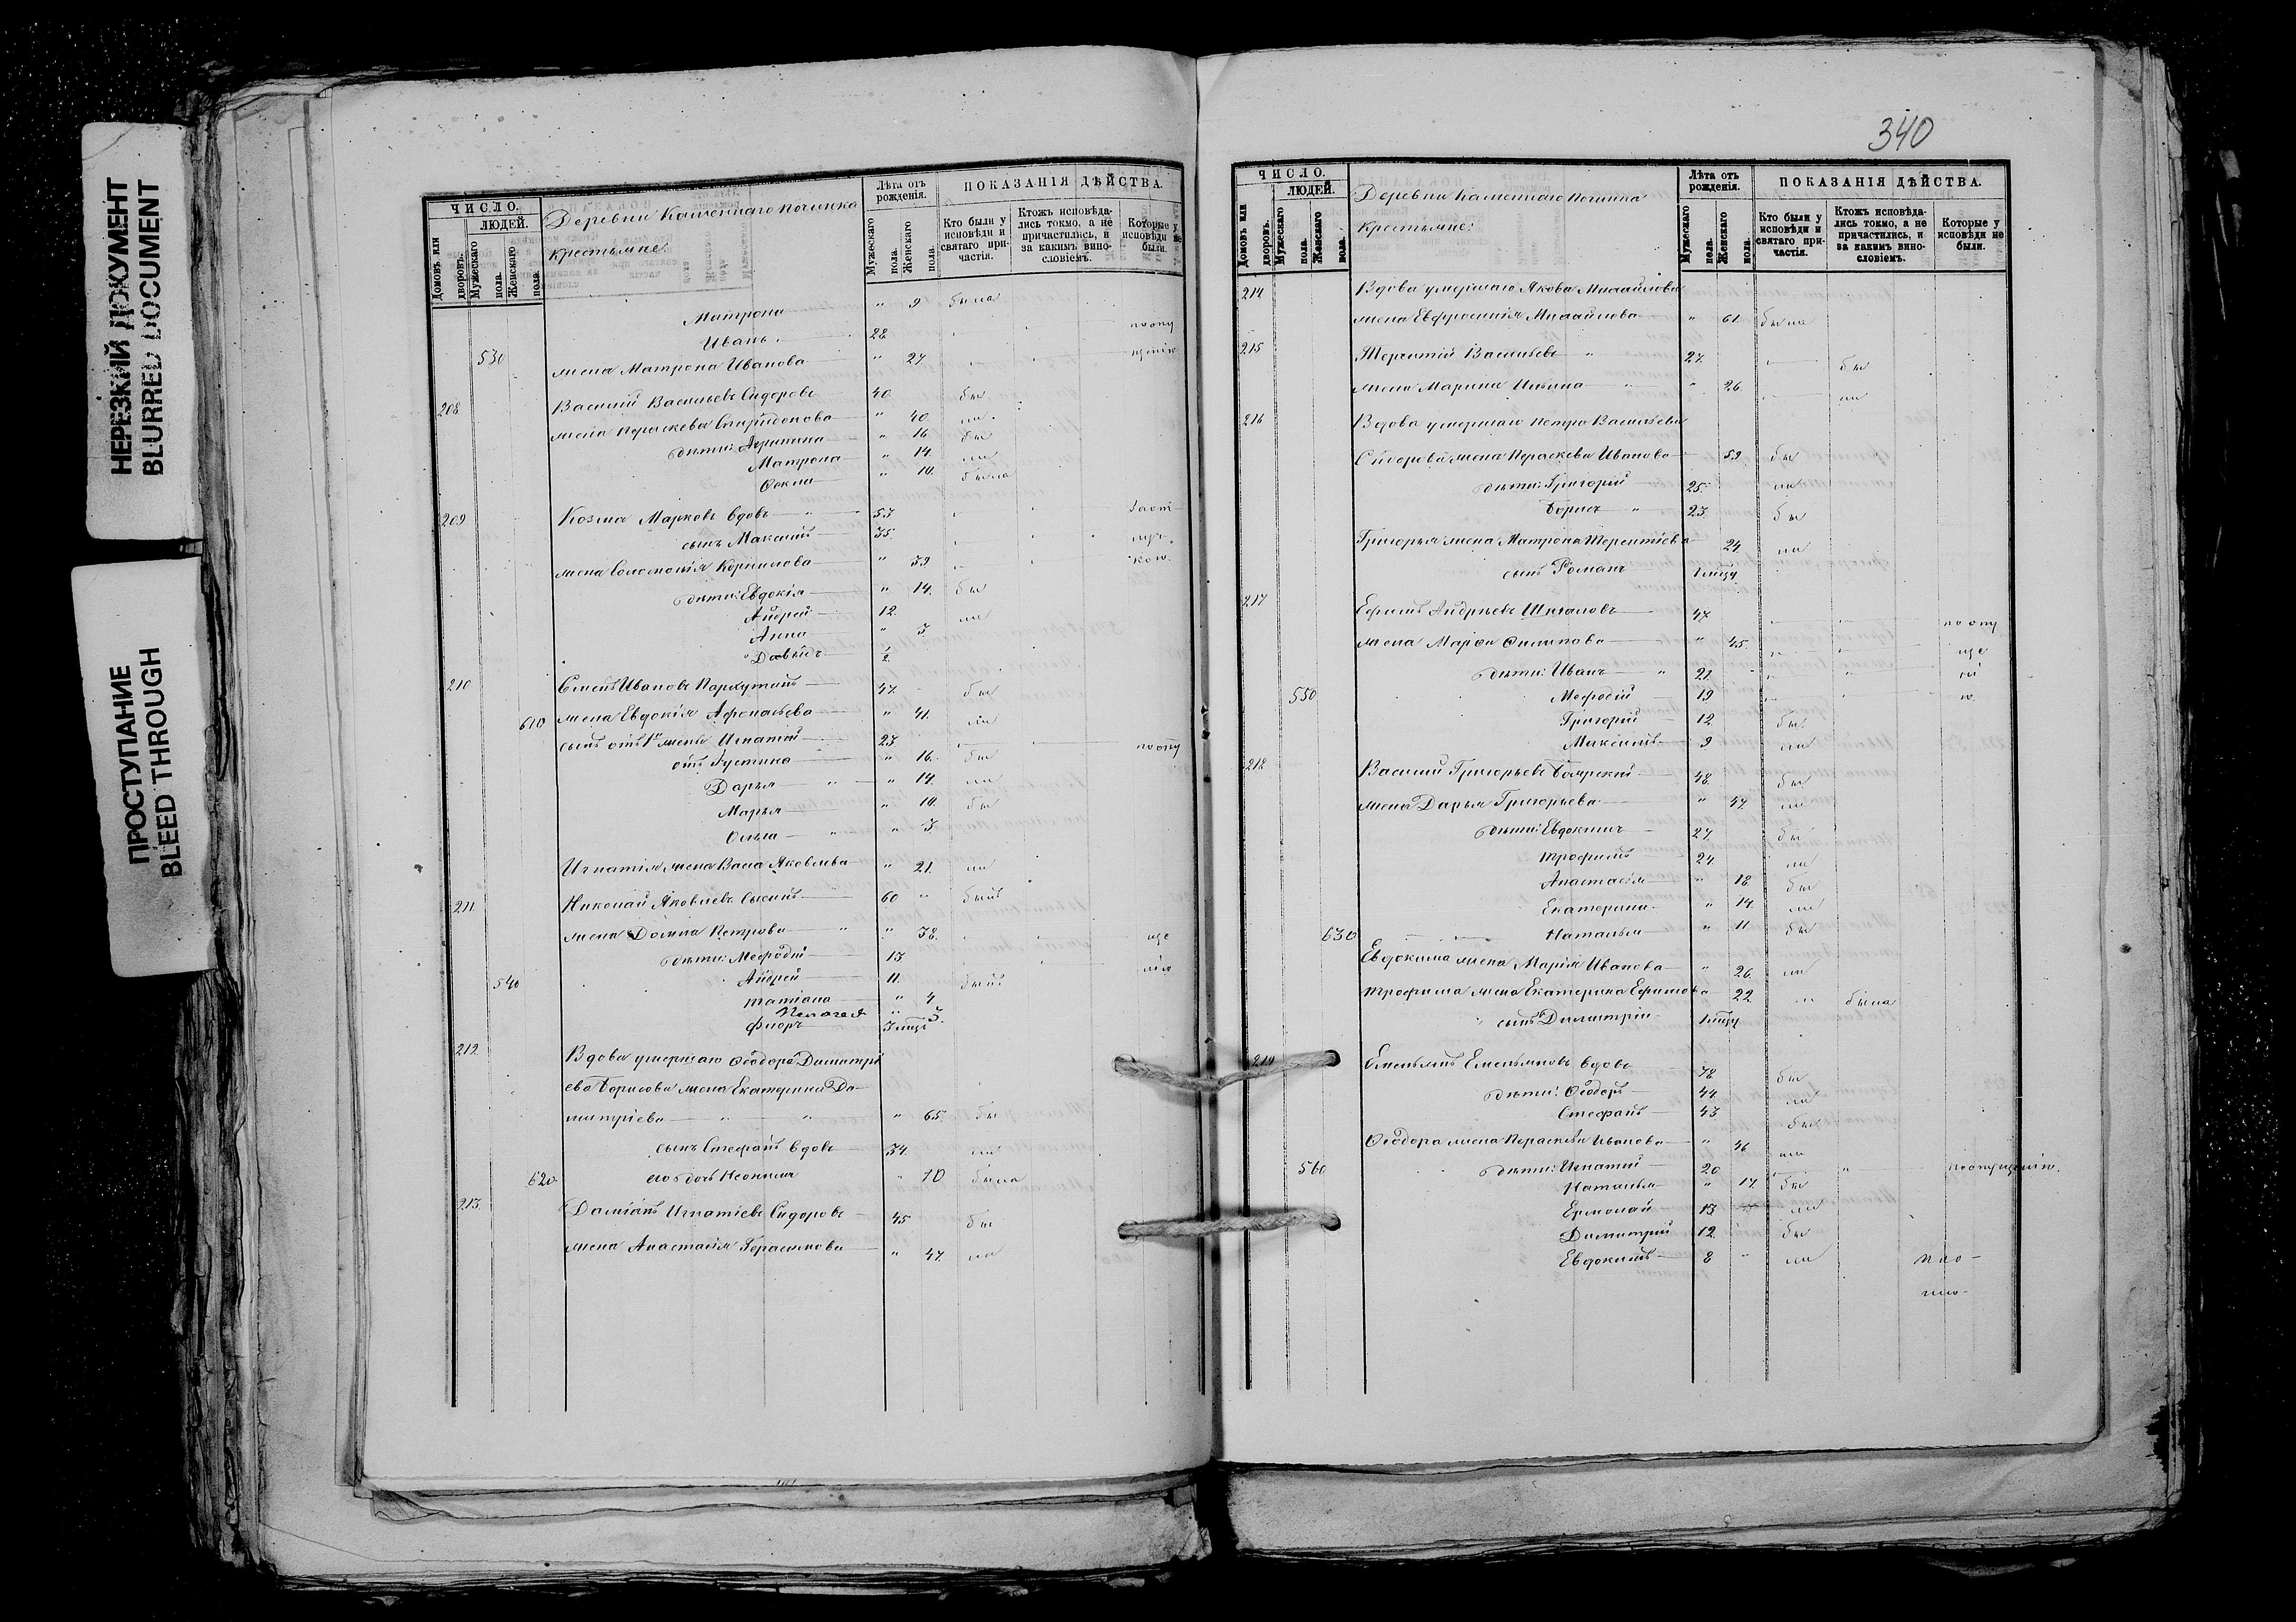 НЕРЕЗКИЙ ДОКУМЕНТ
BLURRED DOCUMENT
ПРОСТУПАНИЕ
BLEED THROUGH
ЧИСЛО.
ЛЮДЕЙ.
Домовъ или дворовъ.
Мужескаго пола.
Женскаго пола.
Деревни Каменнаго Починка
крестьяне
Лѣта отъ рожденія.
Мужескаго пола.
Женскаго пола.
ПОКАЗАНІЯ ДѢЙСТВА.
Кто были у исповѣди и святаго причастія.
Ктожъ исповѣдались токмо, а не причастились, и за какимъ винословіемъ.
Которые у исповѣди не были.
Матрона " 9 была
Иванъ 28 по опу
530 жена Матрона Иванова " 27 щенію
208 Василий Васильевъ Сидоровъ 40 бы
жена Параскева Спиридонова " 40 ли
дѣти: Агрипина " 16 бы
Матрона " 14 ли
Ѳекла " 10 была
209 Козма Марковъ вдовъ 53
сынъ Максимъ 35
жена Соломонія Корнилова " 39
дѣти: Евдокія " 14 бы
Андрей 12 ли
Анна " 3
Давыдъ 1/2
210 Семенъ Ивановъ 47 бы
610 жена Евдокія Афонасьева " 41 ли
сынъ отъ 1й жены Игнатій 23 по опу
Густина " 16 бы
Дарья " 14 ли
Марья " 10 бы
Ольга " 3
Игнатія жена Васа Яковлева " 21 ли
211 Николай Яковлевъ 60 " былъ
жена Домна Петрова " 38 ще
дѣти: Мефодій 13 нію
540 Андрей 11 былъ
Татіана " 4
Пелагея " 3
Флоръ 3 мцъ
212 Вдова умершаго Ѳеодора Димитрі
ева Борисова жена Екатерина Ди-
митріева " 65 бы
сынъ Стефанъ вдовъ 34 ли
620 его дочь Неонила " 10 была
213 Даміанъ Игнатіевъ Сидоровъ 45 бы
жена Анастасія Герасимова " 47 ли
340
ЧИСЛО.
ЛЮДЕЙ.
Домовъ или дворовъ.
Мужескаго пола.
Женскаго пола.
Деревни Каменнаго Починка
Крестьяне:
Лѣта отъ рожденія.
Мужескаго пола.
Женскаго пола.
ПОКАЗАНІЯ ДѢЙСТВА.
Кто были у исповѣди и святаго причастія.
Ктожъ исповѣдались токмо, а не причастились, и за какимъ винословіемъ.
Которые у исповѣди не были.
214 Вдова умершаго Якова Михайлова
жена Евфросинія Михайлова " 61 была
215 Терентій Васильевъ " 27 бы
жена Марина Ильина " 26 ли
216 Вдова умершаго Петра Васильева
Сидорова жена Параскева Иванова 59 бы
дѣти: Григорій 25 ли
Борисъ " 23 бы
Григорья жена Матрона Терентіева 24 ли
сынъ Романъ
217 Ефимъ Андреевъ 47 по опу
жена Марфа Филипова " 45 ще
дѣти: Иванъ " 21 ні
550 Мефодій 19 ю
Григорій 12 бы
Максимъ 9 ли
218 Василий Григорьевъ Боярскій 48 бы
жена Дарья Григорьева " 47 ли
дѣти: Евдокимъ 27 бы
Трофимъ 24 ли
Анастасія " 18 бы
Екатерина " 14 ли
630 Наталья " 11 бы
Евдокима жена Марія Иванова " 26 ли
Трофима жена Екатерина Ефимова 22 была
сынъ Димитрій
219 Емельянъ Емельяновъ вдовъ 78 бы
дѣти: Ѳеодоръ 44 ли
Стефанъ 43 бы
Ѳеодора жена Параскева Иванова " 46 ли
560 дѣти: Игнатій 20 " по опущенію.
Наталья " 17 бы
Ермолай 13 ли
Димитрій 12 бы
Евдокимъ 8 " ли